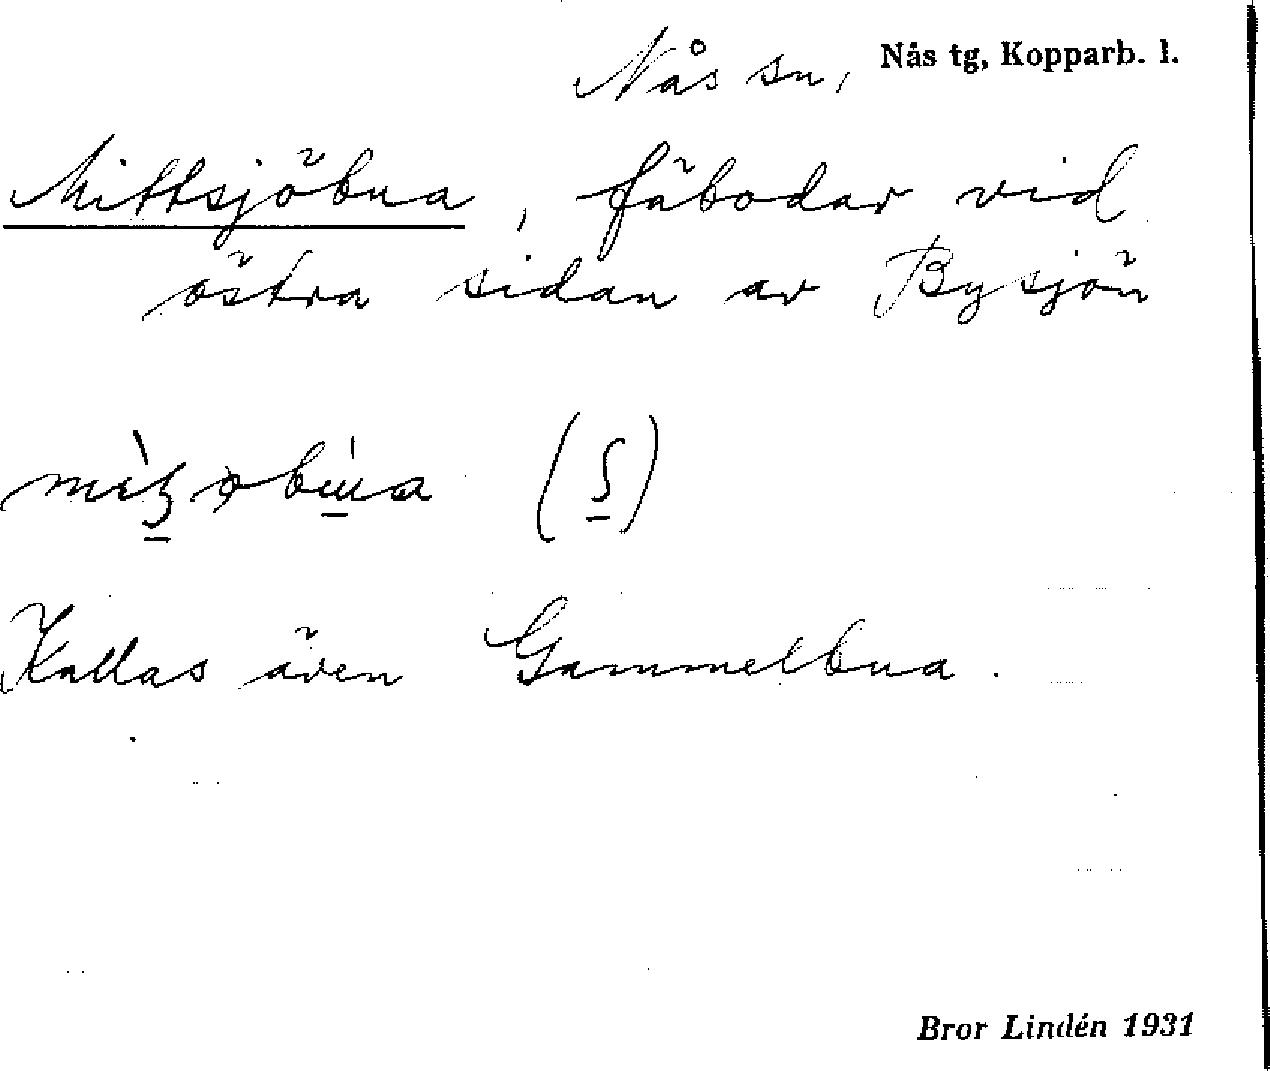 Nås sn, Nås tg, Kopparb. l.
Mittsjöbua, fäbodar vid
östra sidan av Bysjön
Kallas även Gammelbua.
Bror Lindén 1931